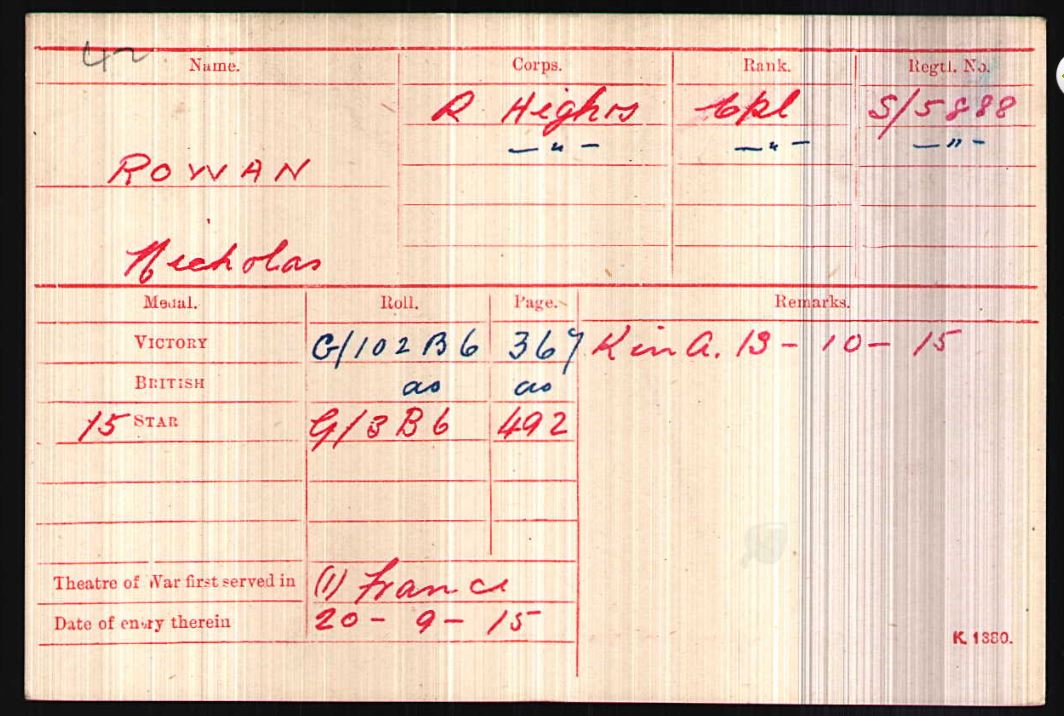 42
Name. Corps. Rank. Regtl. No.
R Highrs Cpl S/5888
— " — — " — — " —
ROWAN
Nicholas
Medal. Roll. Page. Remarks.
VICTORY G/102 B6 367 K in A. 13 - 10 - 15
BRITISH do do
15 STAR G/3 B6 492
Theatre of War first served in (1) France
Date of entry therein 20 - 9 - 15
K. 1380.